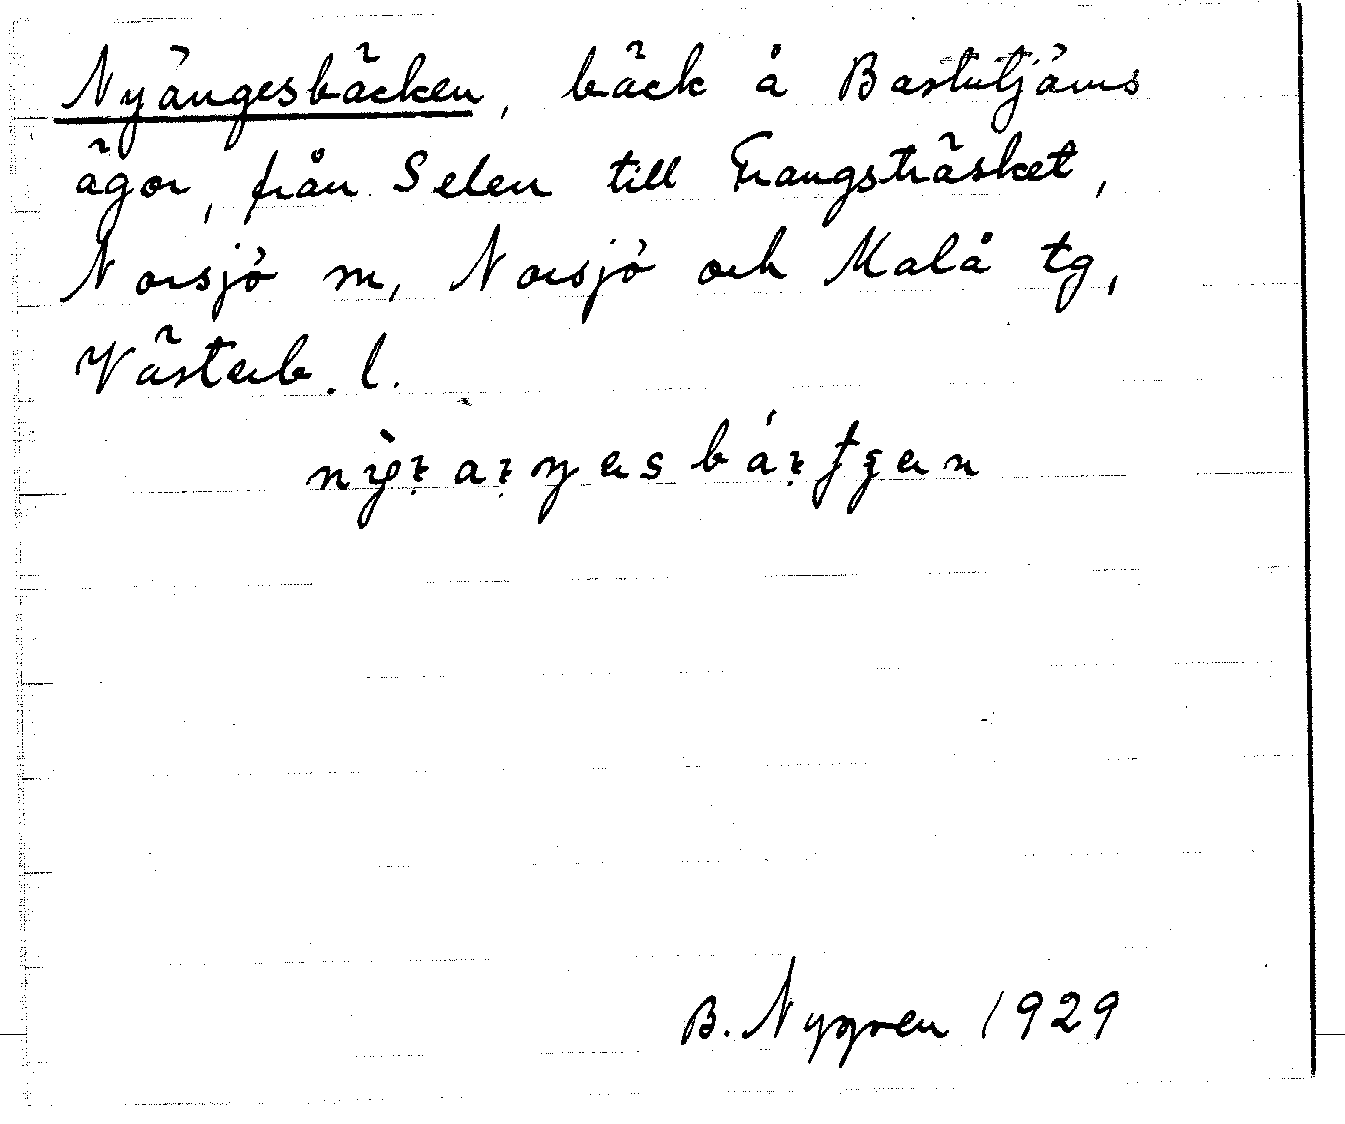 Nyängesbäcken, bäck å Bastutjärns
ägor, från Selen till Frangsträsket,
Norsjö sn, Norsjö och Malå tg,
Västerb. l.
B. Nygren 1929